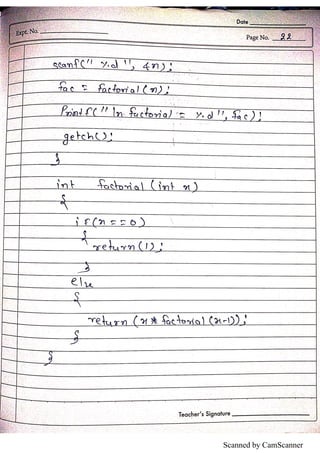 Date
Expt. No.
Page No. 22
scanf(" %d ", &n);
fac = factorial (n);
Printf(" \n factorial = %d ", fac);
getch();
}
int factorial (int x)
{
if(x == 0)
{
return (1);
}
else
{
return (x * factorial (x-1));
}
}
Teacher's Signature
Scanned by CamScanner